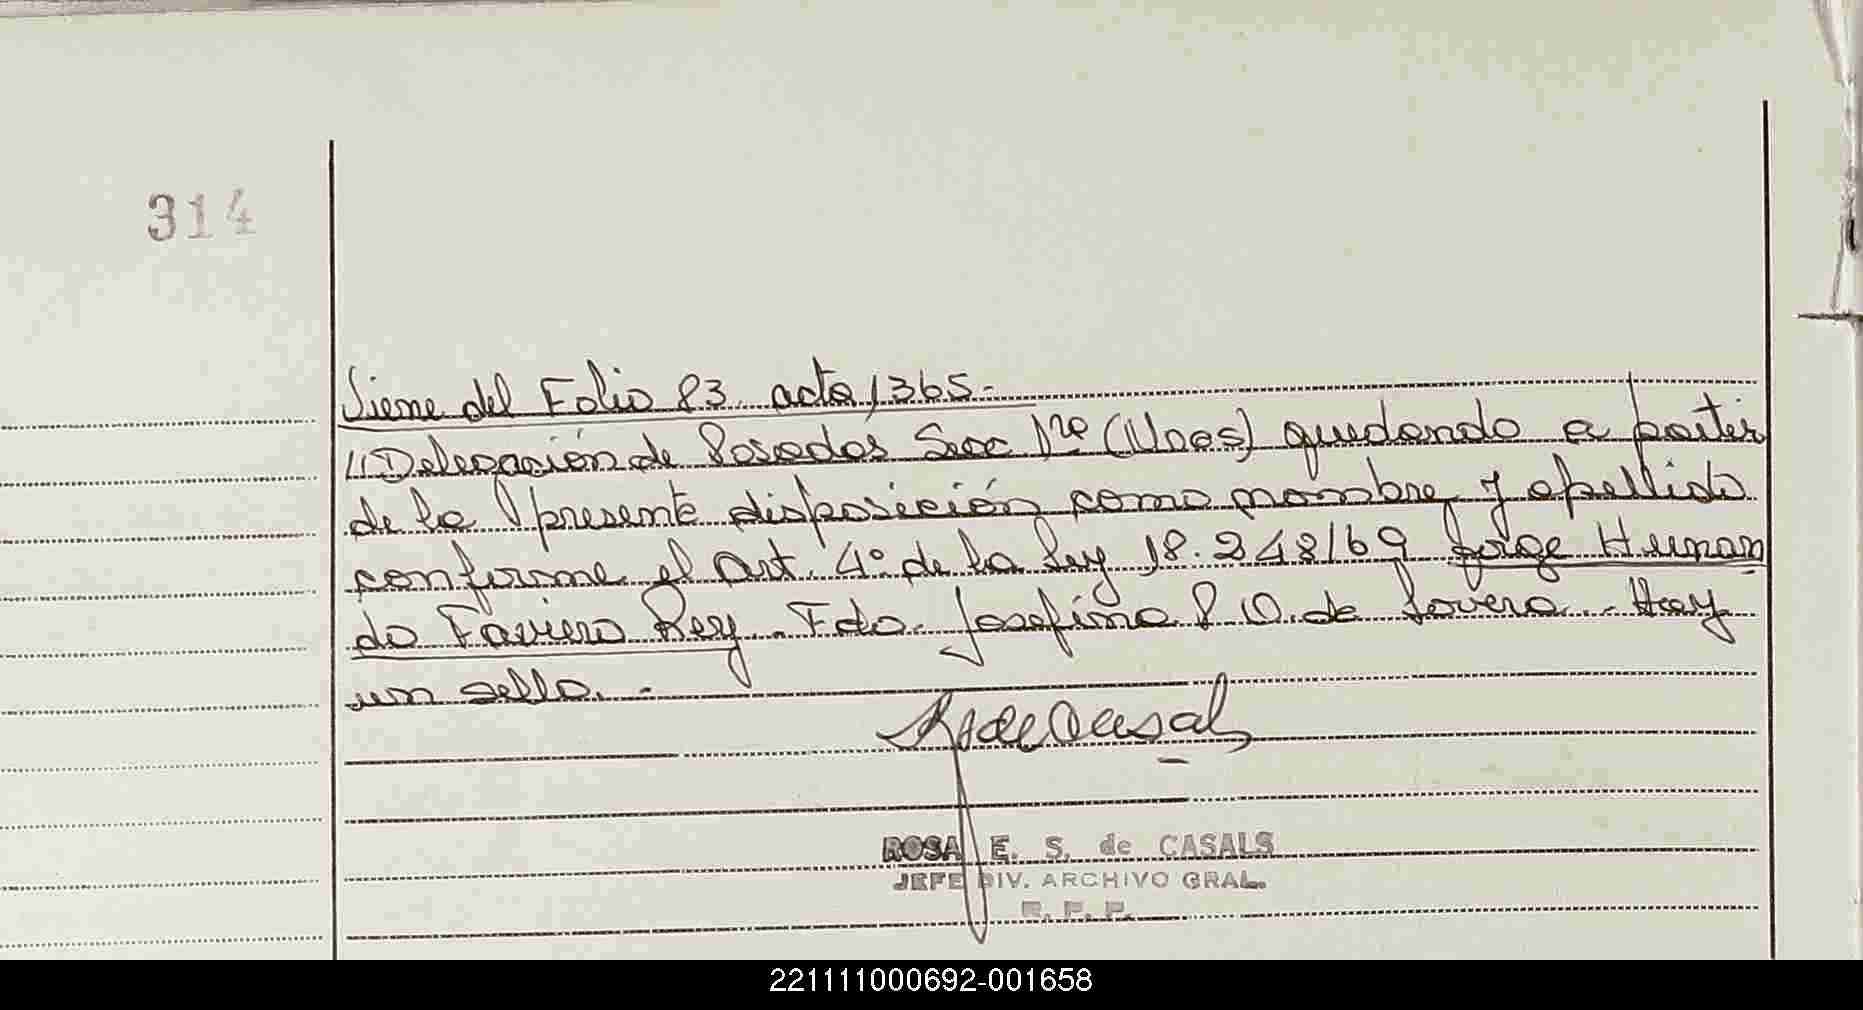 314
Viene del Folio 83 acta 1365.-
//Delegación de Posadas Secc 1ra (Mnes) quedando a partir
de la presente disposición como nombre y apellido
conforme el art. 4° de la ley 18.248/69 Jorge Hernan
do Faviero Rey. Fdo. Josefina P O. de Lovera.. Hay
un sello..-
R S de Casals
ROSA E. S. de CASALS
JEFE DIV. ARCHIVO GRAL.
R. P. P.
221111000692-001658